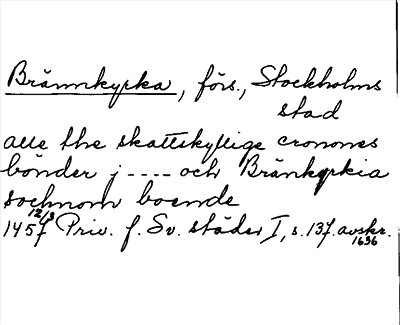 Brännkyrka, förs., Stockholms
stad
alle the skattskyllige cronones
bönder j ---- och Bränkyrkia
sochnom boende
1457 12/3 Priv. f. Sv. städer I, s. 137. avskr. 1636